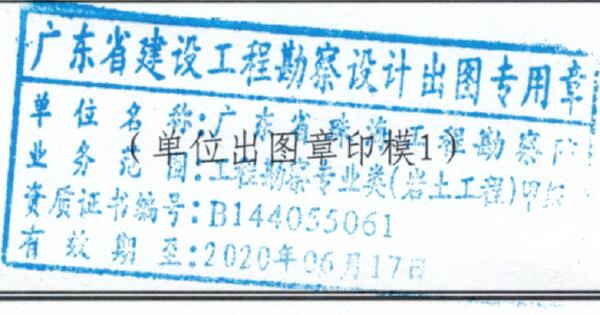 广东省建设工程勘察设计出图专用章
单位名称:广东省珠海工程勘察院
(单位出图章印模1)
业务范围:工程勘察专业类(岩土工程)甲级
资质证书编号:B144055061
有效期至:2020年06月17日